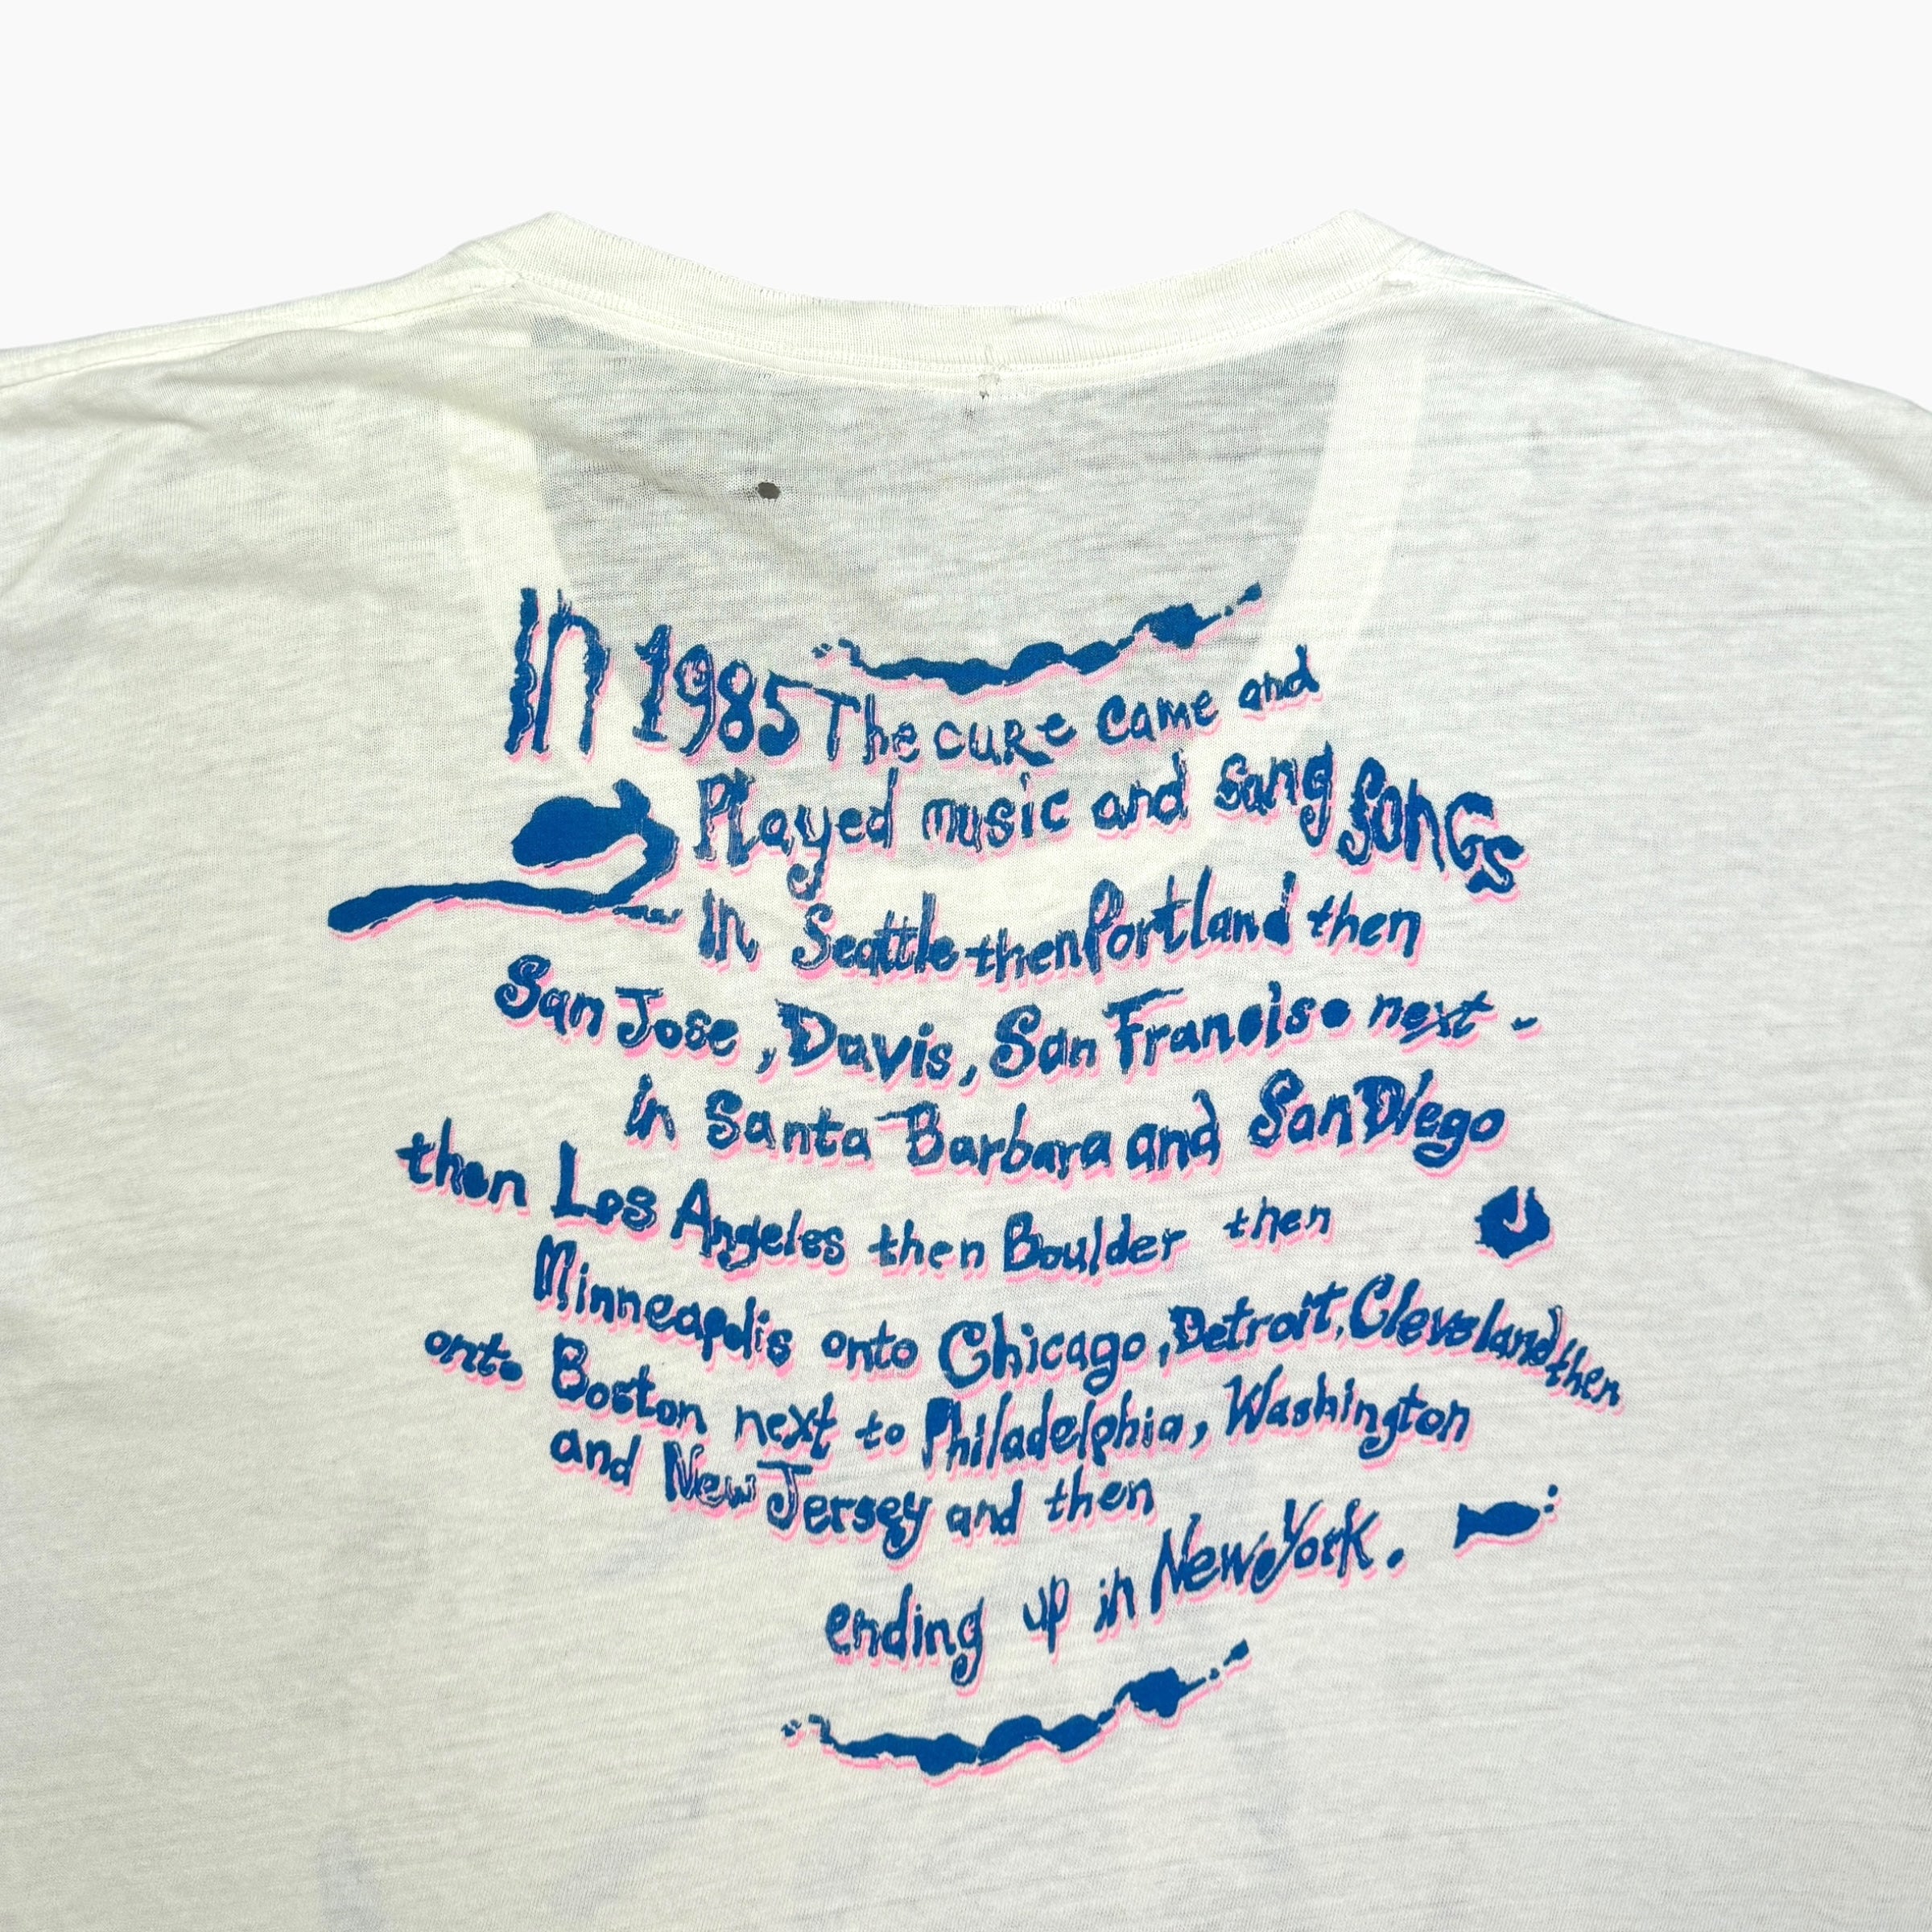 In 1985 The CURe Came and
Played music and Sang SONGS
In Seattle then Portland then
San Jose, Davis, San Francisco next -
in Santa Barbara and San Diego
then Los Angeles then Boulder then
Minneapolis onto Chicago, Detroit, Cleveland then
onto Boston next to Philadelphia, Washington
and New Jersey and then
ending up in New York.